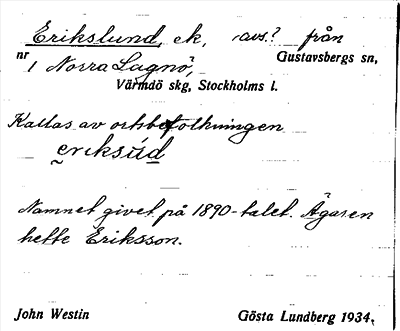 Erikslund, ek, avs.? från
nr 1 Norra Lagnö, Gustavsbergs sn,
Värmdö skg, Stockholms l.
Kallas av ortsbefolkningen
eriksùd
Namnet givet på 1890-talet. Ägaren
hette Eriksson.
John Westin Gösta Lundberg 1934.